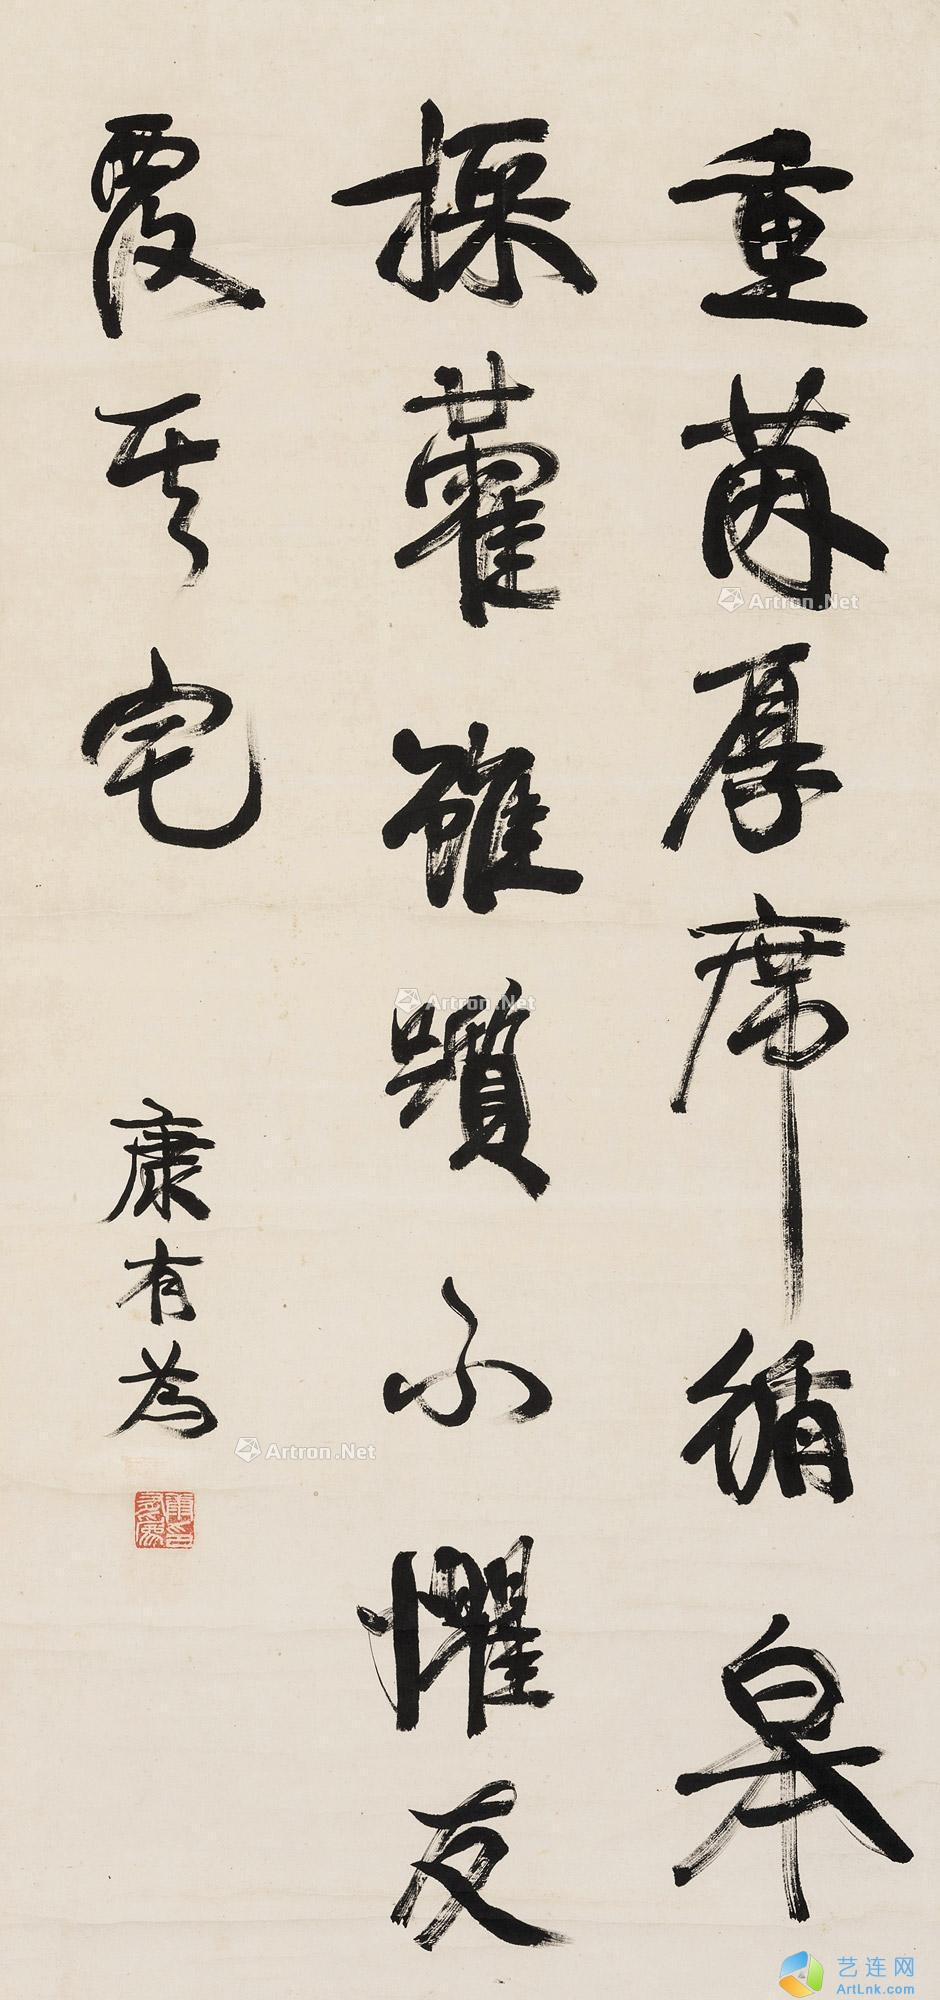 重茵厚席循皋
採藿雖躓不懼反
覆其宅
康有為
康有為印
Artron.Net
Artron.Net
Artron.Net
艺连网
ArtLnk.com